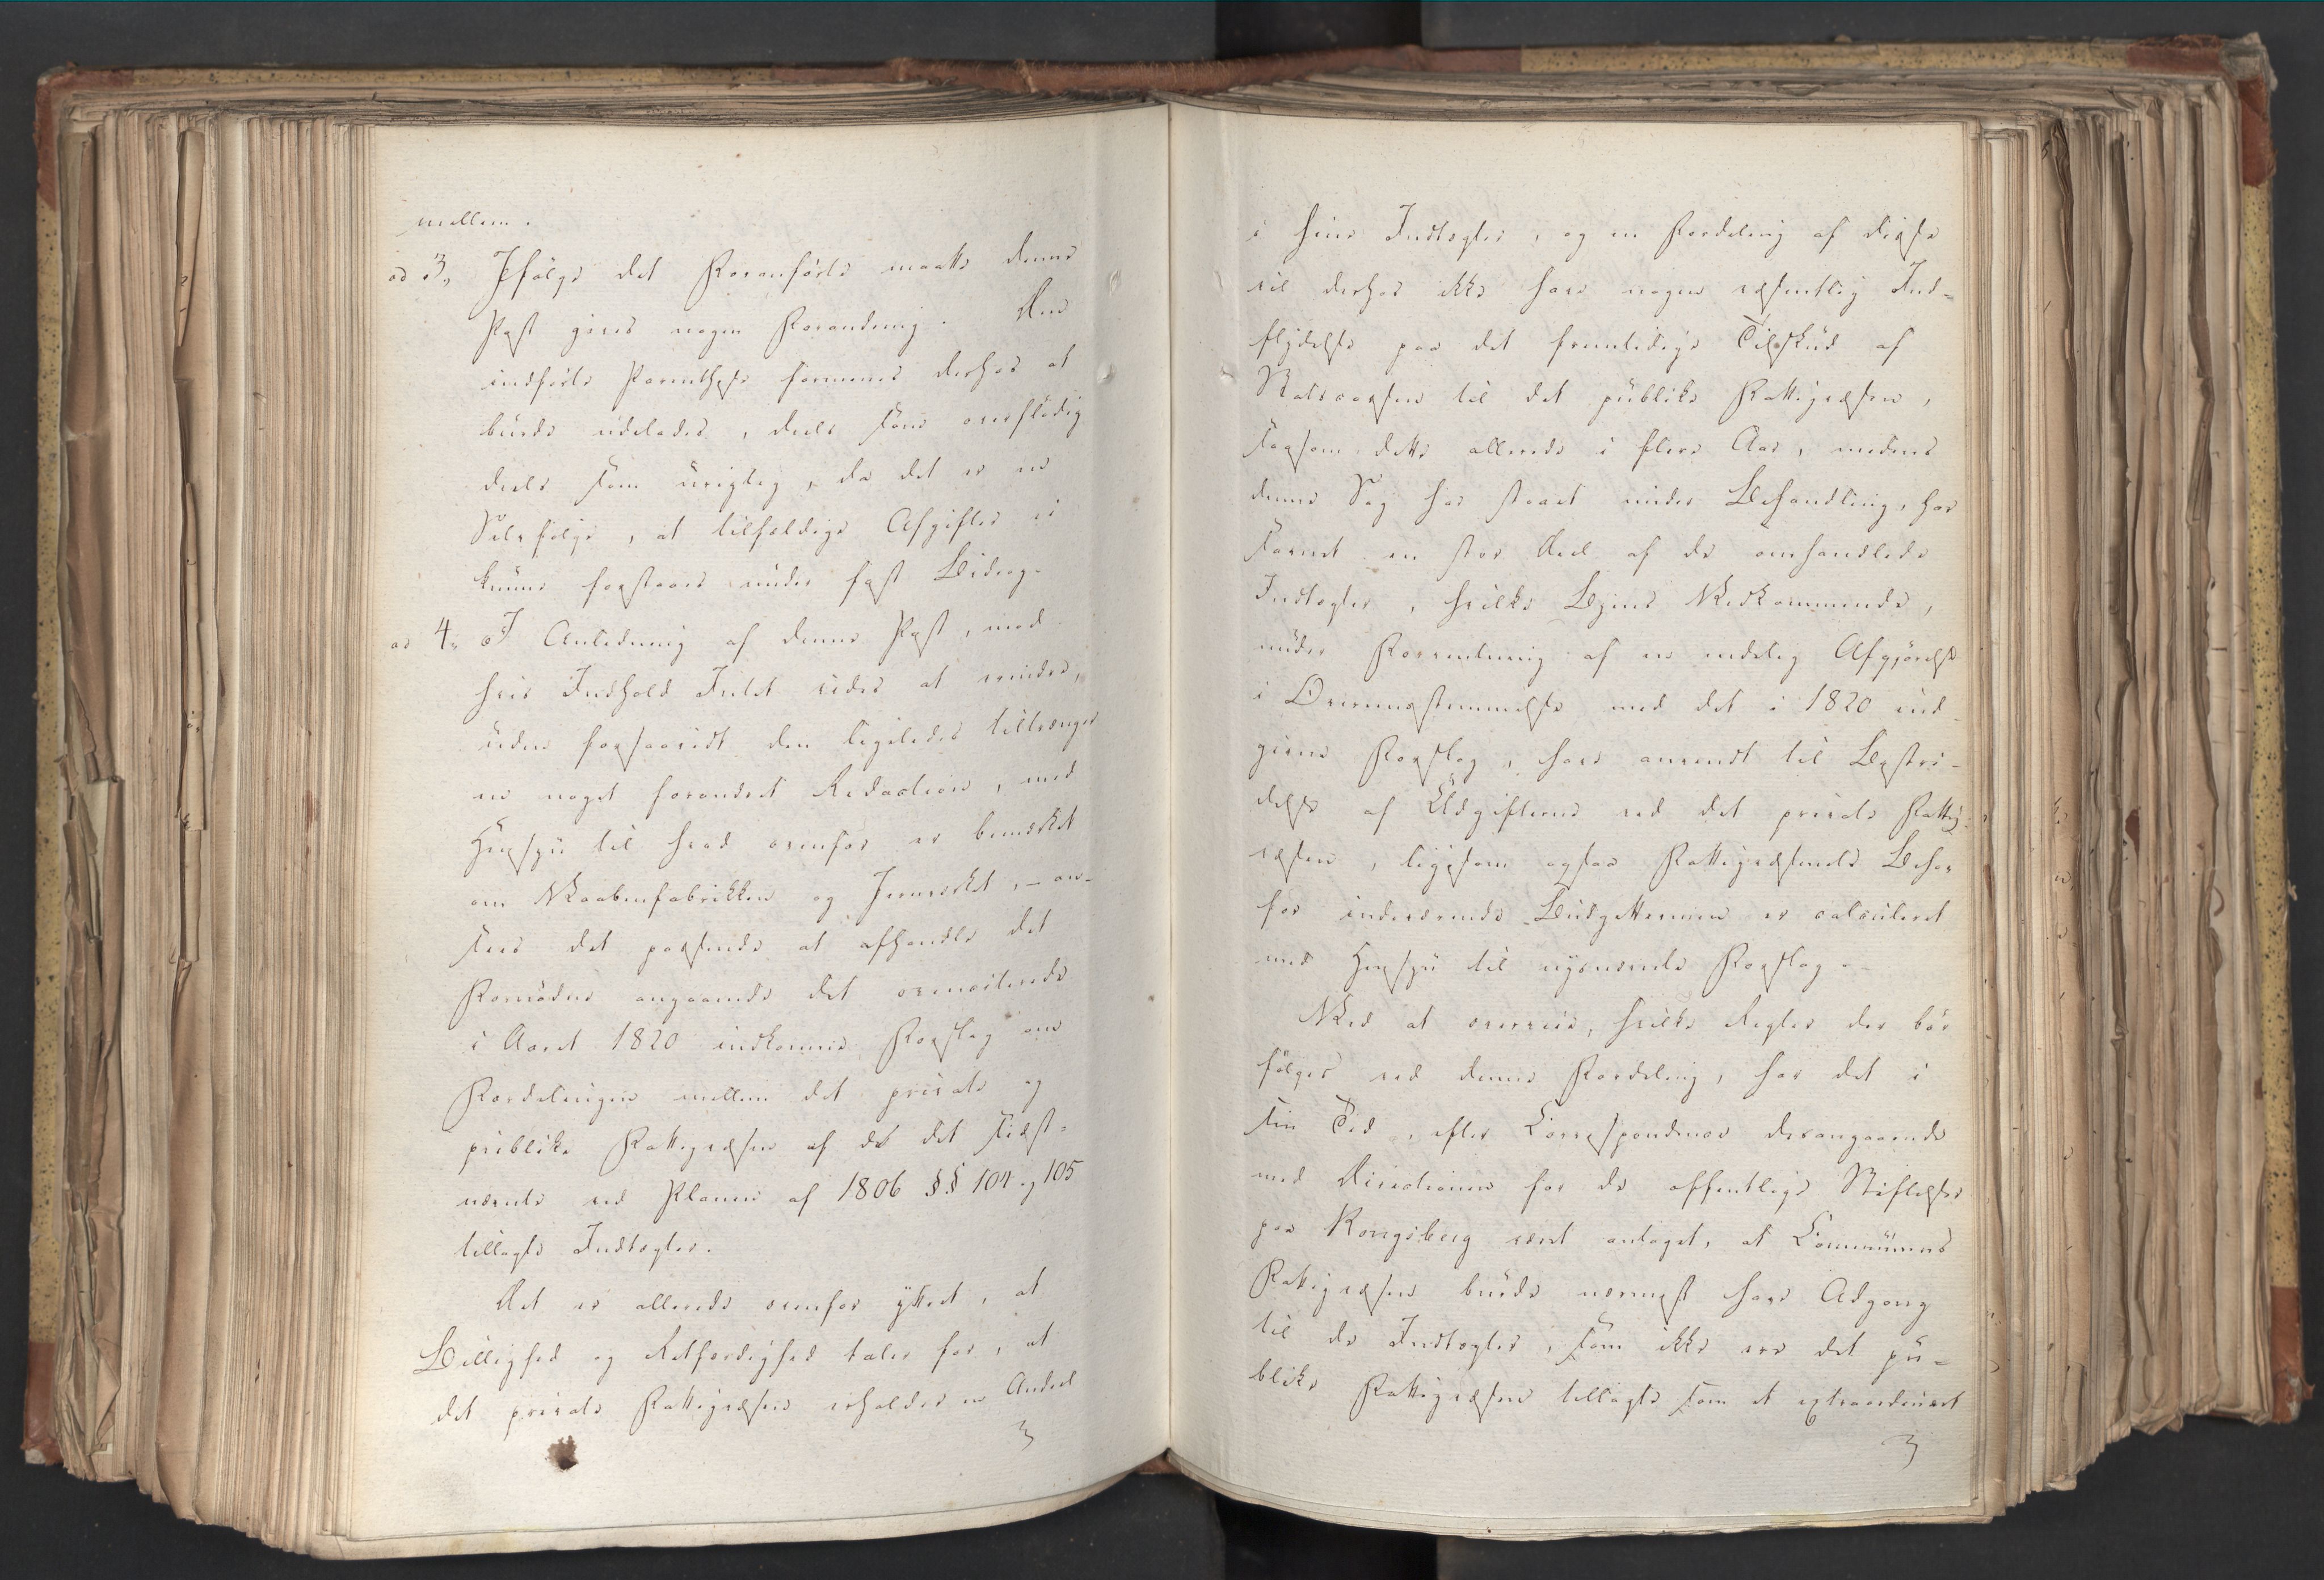 mellem.
ad 3, Ifølge det Foranførte maatte denne
Post gives nogen Forandring. Den
indførte Parenthese formenes derhos at
burde udelades, deels som overflødig
deels som urigtig, da det er en
Selvfølge, at tilfældige Afgifter ei
kunne forstaaes under fast Bidrag.
ad 4, I Anledning af denne Post, mod
hvis Indhold Intet vides at erindre,
uden forsaavidt den ligeledes tiltrænger
en noget forandret Redaction, med
Hensyn til hvad ovenfor er bemærket
om Vaabenfabrikken og Jernværket, – an-
sees det passende at afhandle det
Fornødne angaaende det ommeldte
i Aaret 1820 indkomne Forslag om
Fordelingen mellem det private og
publike Fattigvæsen af de det sidst-
nævnte ved Planen af 1806 §§ 104 og 105
tillagte Indtægter.
Det er allerede ovenfor yttret, at
Billighed og Retfærdighed taler for, at
det private Fattigvæsen erholder en Andeel
i hine Indtægter, og en Fordeling af disse
vil derhos ikke have nogen væsentlig Ind-
flydelse paa det fremtidige Tilskud af
Statscassen til det publike Fattigvæsen,
saasom dette allerede i flere Aar, medens
denne Sag har staaet under Behandling, har
savnet en stor Deel af de omhandlede
Indtægter, hvilke Byens Vedkommende,
under Forventning af en endelig Afgjørelse
i Overeensstemmelse med det i 1820 ind-
givne Forslag, have anvendt til Bestri-
delse af Udgifterne ved det private Fattig-
væsen, ligesom ogsaa Fattigvæsenets Behov
for indeværende Budgettermin er calculeret
med Hensyn til nysnævnte Forslag.
Ved at overveie, hvilke Regler der bør
følges ved denne Fordeling, har det i
sin Tid, efter Correspondence derangaaende
med Directionen for de offentlige Stiftelser
paa Kongsberg været antaget, at Communens
Fattigvæsen burde nærmest have Adgang
til de Indtægter, som ikke ere det pu-
blike Fattigvæsen tillagte som et extraordinært